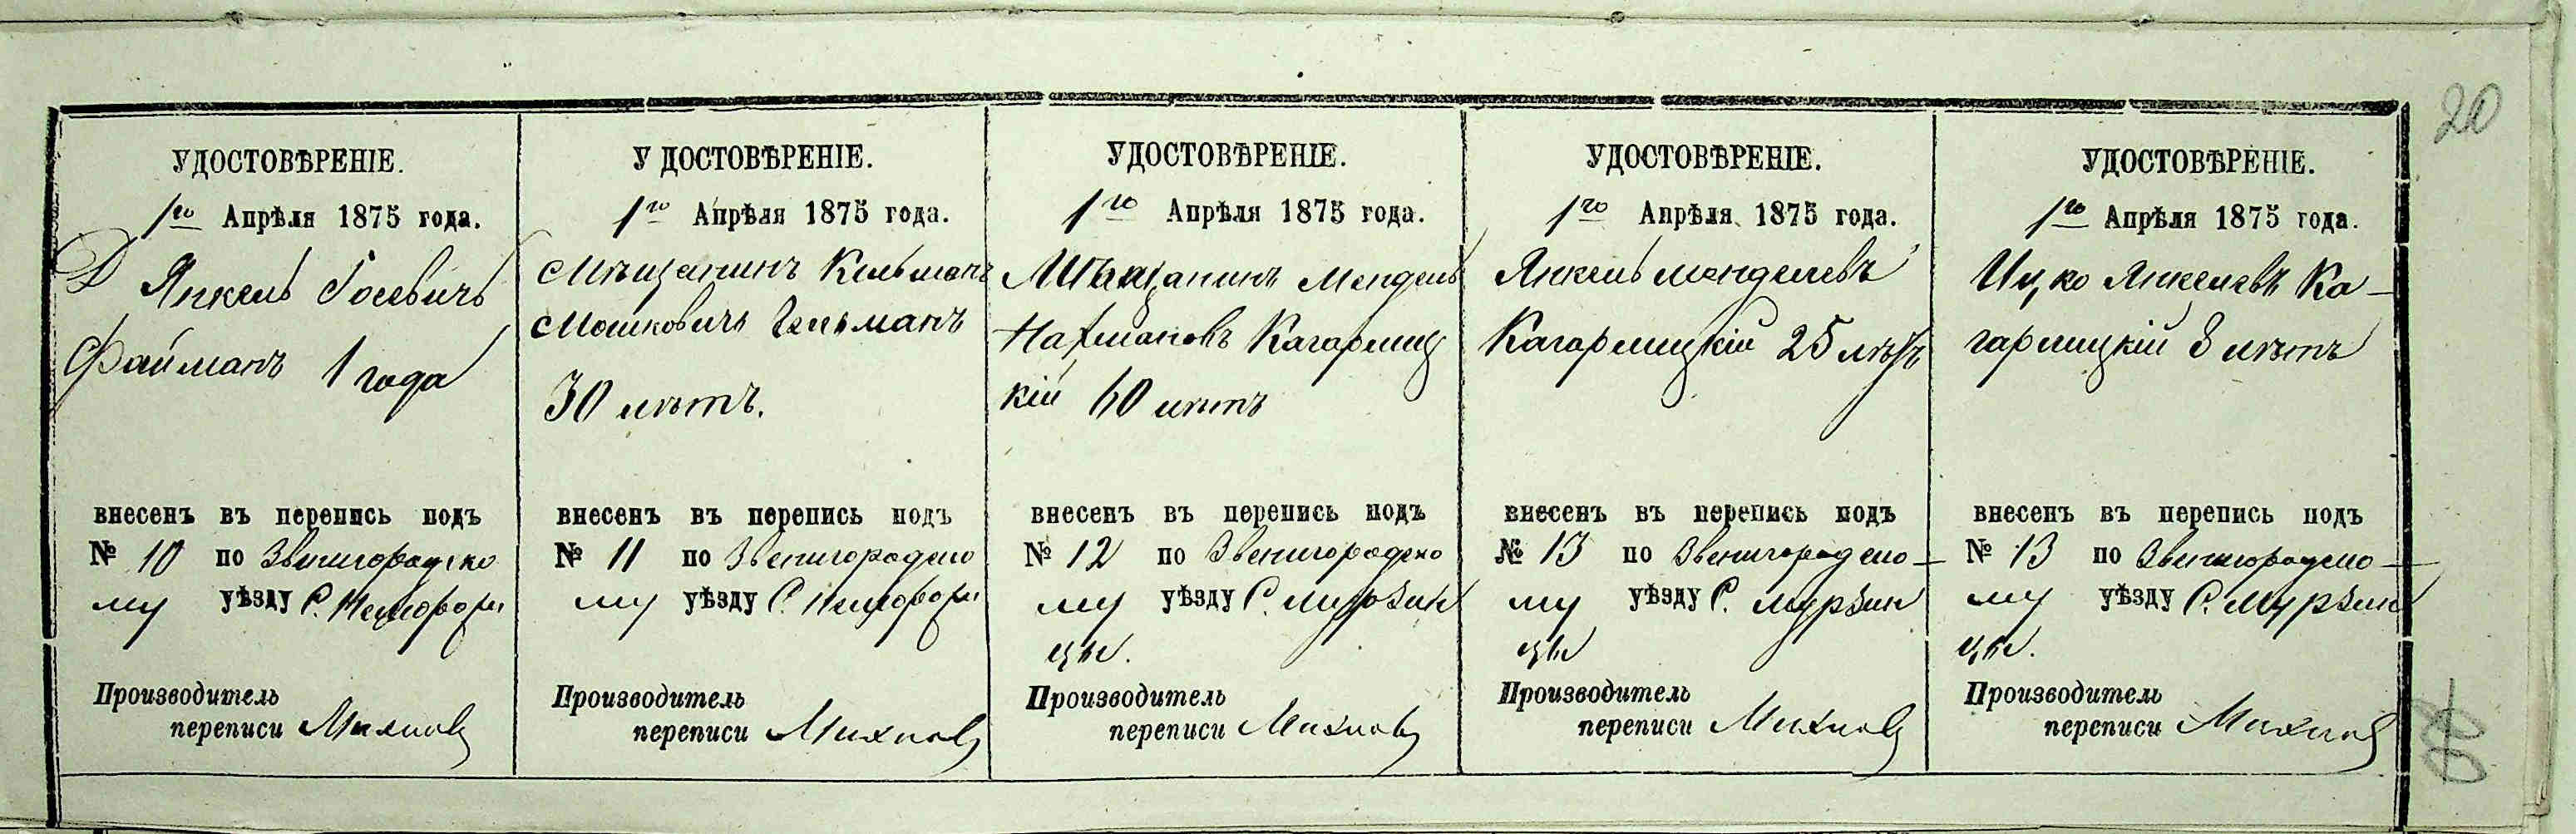 20
УДОСТОВѢРЕНІЕ.
1го Апрѣля 1875 года.
Янкель Іосевичъ
Файманъ 1 года
внесенъ въ перепись подъ
№ 10 по Звенигородско
му уѣзду С.
Производитель
переписи
У ДОСТОВѢРЕНІЕ.
1го Апрѣля 1875 года.
Мѣщанинъ Кельманъ
Мошковичъ Гельманъ
30 лѣтъ.
внесенъ въ перепись подъ
№ 11 по Звенигородско
му уѣзду С.
Производитель
переписи
УДОСТОВѢРЕНІЕ.
1го Апрѣля 1875 года.
Мѣщанинъ Мендель
Нахмановъ Кагарлиц
кій 60 лѣтъ
внесенъ въ перепись подъ
№ 12 по Звенигородско
му уѣзду С. Мурзин
цы.
Производитель
переписи
УДОСТОВѢРЕНІЕ.
1го Апрѣля 1875 года.
Янкель Менделевъ
Кагарлицкій 25 лѣтъ
внесенъ въ перепись подъ
№ 13 по Звенигородско-
му уѣзду С. Мурзин
цы
Производитель
переписи
УДОСТОВѢРЕНІЕ.
1го Апрѣля 1875 года.
Ицко Янкелевъ Ка-
гарлицкій 8 лѣтъ
внесенъ въ перепись подъ
№ 13 по Звенигородско-
му уѣзду С. Мурзин
цы.
Производитель
переписи